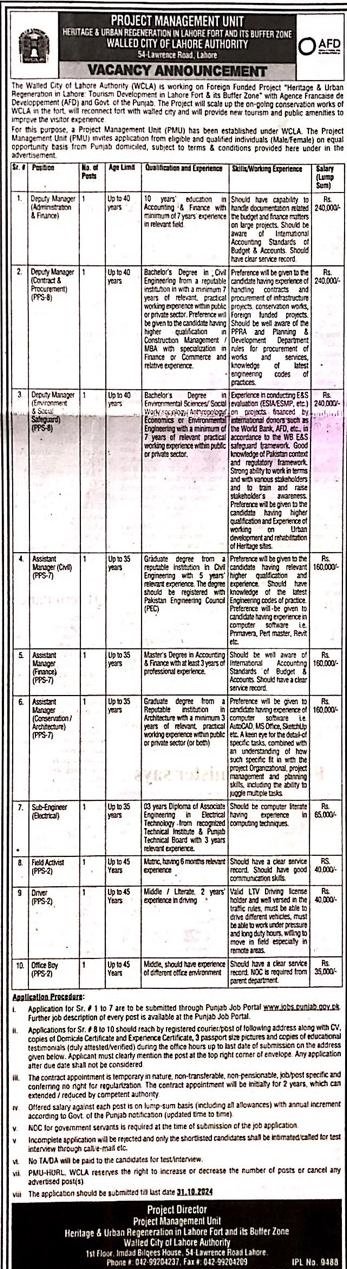 PROJECT MANAGEMENT UNIT
HERITAGE & URBAN REGENERATION IN LAHORE FORT AND ITS BUFFER ZONE
WALLED CITY OF LAHORE AUTHORITY
54-Lawrence Road, Lahore
AFD
VACANCY ANNOUNCEMENT
The Walled City of Lahore Authority (WCLA) is working on Foreign Funded Project "Heritage & Urban
Regeneration in Lahore: Tourism Development in Lahore Fort & its Buffer Zone" with Agence Francaise de
Developpement (AFD) and Govt. of the Punjab. The Project will scale up the on-going conservation works of
WCLA in the fort, will reconnect fort with walled city and will provide new tourism and public amenities to
improve the visitor experience.
For this purpose, a Project Management Unit (PMU) has been established under WCLA. The Project
Management Unit (PMU) invites application from eligible and qualified individuals (Male/Female) on equal
opportunity basis from Punjab domiciled, subject to terms & conditions provided here under in the
advertisement.
Sr. # Position No. of Posts Age Limit Qualification and Experience Skills/Working Experience Salary (Lump Sum)
1. Deputy Manager (Administration & Finance) 1 Up to 40 years 10 years' education in Accounting & Finance with minimum of 7 years' experience in relevant field. Should have capability to handle documentation related the budget and finance matters on large projects. Should be aware of International Accounting Standards of Budget & Accounts. Should have clear service record. Rs. 240,000/-
2. Deputy Manager (Contract & Procurement) (PPS-8) 1 Up to 40 years Bachelor's Degree in Civil Engineering from a reputable institution in with a minimum 7 years of relevant, practical working experience within public or private sector. Preference will be given to the candidate having higher qualification in Construction Management / MBA with specialization in Finance or Commerce and relative experience. Preference will be given to the candidate having experience of handling contracts and procurement of infrastructure projects, conservation works, Foreign funded projects. Should be well aware of the PPRA and Planning & Development Department rules for procurement of works and services, knowledge of latest engineering codes of practices. Rs. 240,000/-
3. Deputy Manager (Environment & Social Safeguard) (PPS-8) 1 Up to 40 years Bachelor's Degree in Environmental Sciences/ Social Work/ Anthropology/ Economics or Environmental Engineering with a minimum of 7 years of relevant practical working experience within public or private sector. Experience in conducting E&S evaluation (ESIA/ESMP, etc.) on projects financed by international donors such as the World Bank, AFD, etc., in accordance to the WB E&S safeguard framework. Good knowledge of Pakistan context and regulatory framework. Strong ability to work in teams and with various stakeholders and to train and raise stakeholder's awareness. Preference will be given to the candidate having higher qualification and Experience of working on Urban development and rehabilitation of Heritage sites. Rs. 240,000/-
4. Assistant Manager (Civil) (PPS-7) 1 Up to 35 years Graduate degree from a reputable institution in Civil Engineering with 5 years' relevant experience. The degree should be registered with Pakistan Engineering Council (PEC) Preference will be given to the candidate having relevant higher qualification and experience. Should have knowledge of the latest Engineering codes of practice. Preference will be given to candidate having experience in computer software i.e. Primavera, Pert master, Revit etc. Rs. 160,000/-
5. Assistant Manager (Finance) (PPS-7) 1 Up to 35 years Master's Degree in Accounting & Finance with at least 3 years of professional experience. Should be well aware of International Accounting Standards of Budget & Accounts. Should have a clear service record. Rs. 160,000/-
6. Assistant Manager (Conservation / Architecture) (PPS-7) 1 Up to 35 years Graduate degree from a Reputable institution in Architecture with a minimum 3 years of relevant, practical working experience within public or private sector (or both) Preference will be given to candidate having experience of computer software i.e. AutoCAD, MS Office, SketchUp etc. A keen eye for the detail-of specific tasks, combined with an understanding of how such specific fit in with the project Organizational, project management and planning skills, including the ability to juggle multiple tasks. Rs. 160,000/-
7. Sub-Engineer (Electrical) 1 Up to 35 years 03 years Diploma of Associate Engineering in Electrical Technology from recognized Technical Institute & Punjab Technical Board with 3 years relevant experience. Should be computer literate having experience in computing techniques. Rs. 65,000/-
8. Field Activist (PPS-2) 1 Up to 45 Years Matric, having 6 months relevant experience Should have a clear service record. Should have good communication skills. RS. 40,000/-
9 Driver (PPS-2) 1 Up to 45 Years Middle / Literate, 2 years' experience in driving Valid LTV Driving license holder and well versed in the traffic rules, must be able to drive different vehicles, must be able to work under pressure and long duty hours, willing to move in field especially in remote areas. Rs. 40,000/-
10. Office Boy (PPS-2) 1 Up to 45 Years Middle, should have experience of different office environment Should have a clear service record. NOC is required from parent department. Rs. 35,000/-
Application Procedure:
i. Application for Sr. # 1 to 7 are to be submitted through Punjab Job Portal www.jobs.punjab.gov.pk.
Further job description of every post is available at the Punjab Job Portal.
ii. Applications for Sr. # 8 to 10 should reach by registered courier/post of following address along with CV,
copies of Domicile Certificate and Experience Certificate, 3 passport size pictures and copies of educational
testimonials (duly attested/verified) during the office hours up to last date of submission on the address
given below. Applicant must clearly mention the post at the top right corner of envelope. Any application
after due date shall not be considered
iii. The contract appointment is temporary in nature, non-transferable, non-pensionable, job/post specific and
conferring no right for regularization. The contract appointment will be initially for 2 years, which can
extended / reduced by competent authority
iv Offered salary against each post is on lump-sum basis (including all allowances) with annual increment
according to Govt. of the Punjab notification (updated time to time).
v. NOC for government servants is required at the time of submission of the job application.
v Incomplete application will be rejected and only the shortlisted candidates shall be intimated/called for test
interview through call/e-mail etc.
vi. No TA/DA will be paid to the candidates for test/interview.
vii. PMU-HURL, WCLA reserves the right to increase or decrease the number of posts or cancel any
advertised post(s)
viii The application should be submitted till last date 31.10.2024
Project Director
Project Management Unit
Heritage & Urban Regeneration in Lahore Fort and its Buffer Zone
Walled City of Lahore Authority
1st Floor, Imdad Bilqees House, 54-Lawrence Road Lahore.
Phone #: 042-99204237, Fax # 042-99204209
IPL No. 9488